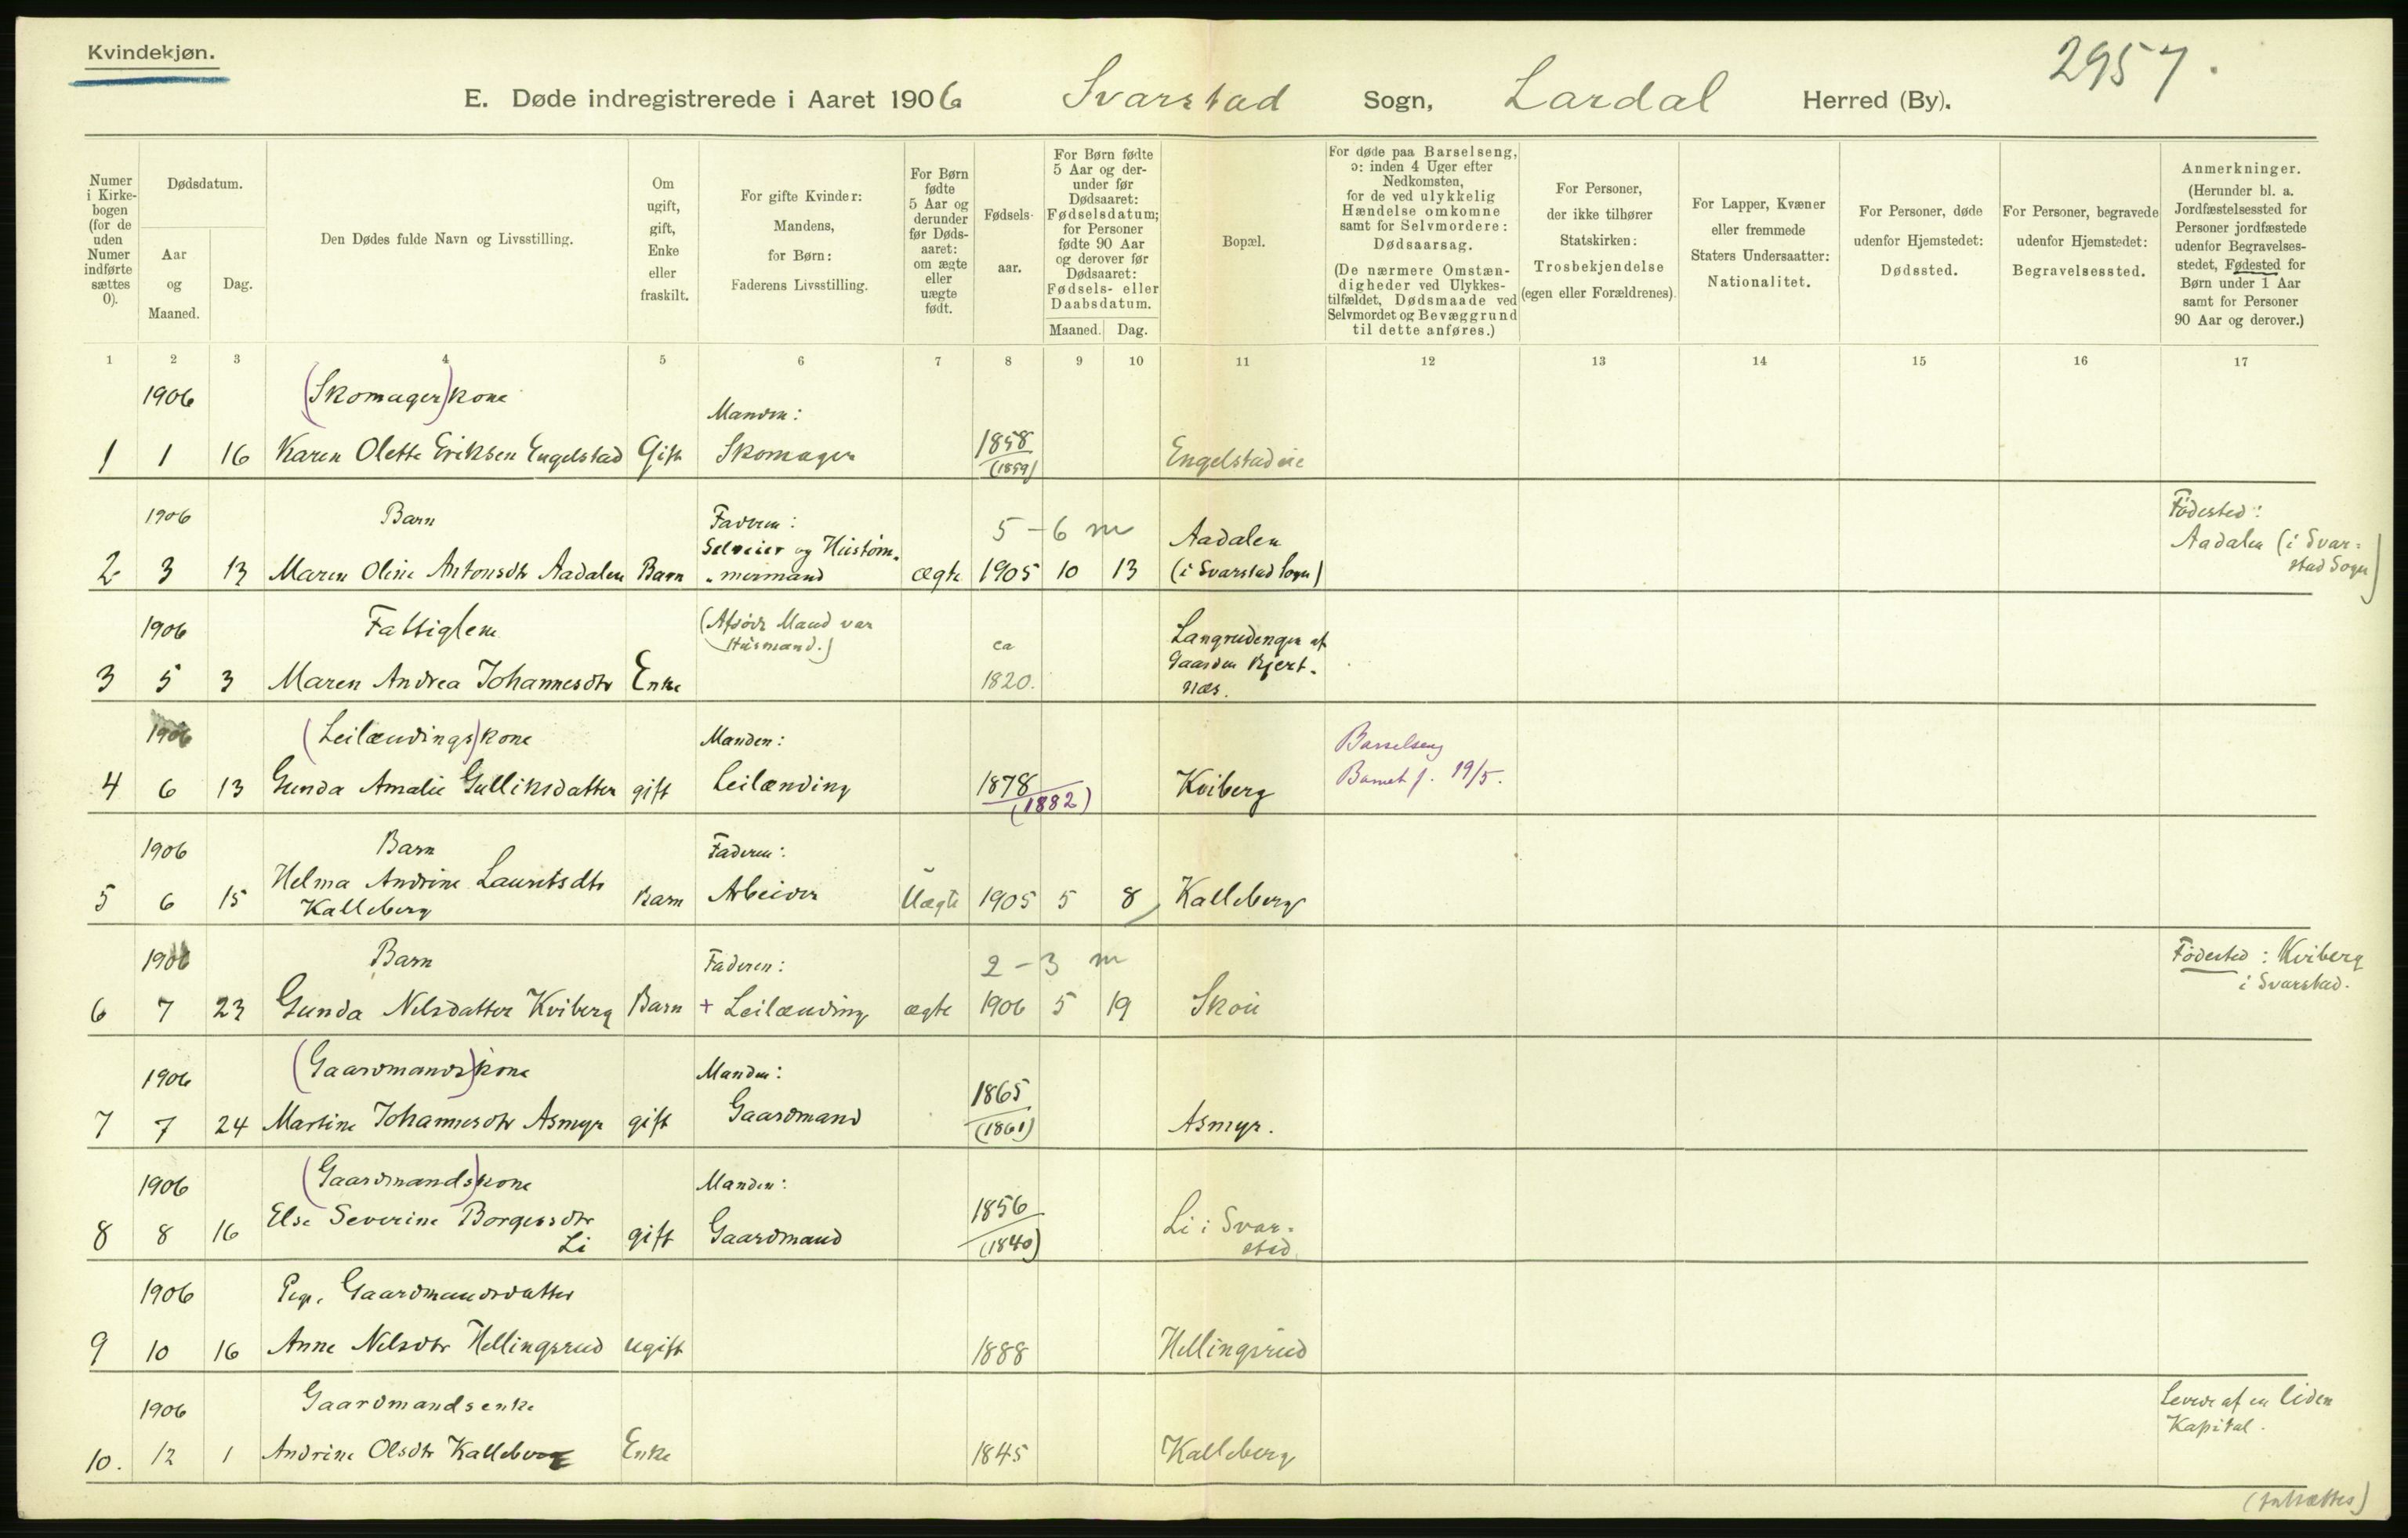 Kvindekjøn.
2957.
E. Døde indregistrerede i Aaret 1906 Svarstad Sogn, Lardal Herred (By).
Numer i Kirkebogen (for de uden Numer indførte sættes 0).
Dødsdatum.
Aar og Maaned.
Dag.
Den Dødes fulde Navn og Livsstilling.
Om ugift, gift, Enke eller fraskilt.
For gifte Kvinder: Mandens, for Børn: Faderens Livsstilling.
For Børn fødte 5 Aar og derunder før Dødsaaret: om ægte eller uægte født.
Fødselsaar.
For Børn fødte 5 Aar og derunder før Dødsaaret: Fødselsdatum; for Personer fødte 90 Aar og derover før Dødsaaret: Fødsels- eller Daabsdatum.
Maaned. Dag.
Bopæl.
For døde paa Barselseng, ɔ: inden 4 Uger efter Nedkomsten, for de ved ulykkelig Hændelse omkomne samt for Selvmordere: Dødsaarsag.
(De nærmere Omstændigheder ved Ulykkestilfældet, Dødsmaade ved Selvmordet og Bevæggrund til dette anføres.)
For Personer, der ikke tilhører Statskirken: Trosbekjendelse (egen eller Forældrenes).
For Lapper, Kvæner eller fremmede Staters Undersaatter: Nationalitet.
For Personer, døde udenfor Hjemstedet: Dødssted.
For Personer, begravede udenfor Hjemstedet: Begravelsessted.
Anmerkninger.
(Herunder bl. a. Jordfæstelsessted for Personer jordfæstede udenfor Begravelsesstedet, Fødested for Børn under 1 Aar samt for Personer 90 Aar og derover.)
1 2 3 4 5 6 7 8 9 10 11 12 13 14 15 16 17
1906 (Skomager)kone Manden:
1 1 16 Karen Olette Eriksen Engelstad Gift Skomager 1858 (1859) Engelstadeie
1906 Barn Faderen: 5-6 m Aadalen Födested:
Selveier og Hustöm- Aadalen (i Svar-
2 3 13 Maren Oline Antonsdtr Aadalen Barn mermand ægte 1905 10 13 (i Svarstad Sogn) stad Sogn)
1906 Fattiglem (Afdöde Mand var Husmand.) ca Langrudengen af
Gaarden Kjert-
3 5 3 Maren Andrea Johannesdtr Enke 1820. næs.
1906 (Leilændings)kone Manden: Barselseng
4 6 13 Gunda Amalie Gulliksdatter gift Leilænding 1878 (1882) Kviberg Barnet f. 19/5.
1906 Barn Faderen:
Helma Andrine Lauritsdtr
5 6 15 Kalleberg Barn Arbeider Uægte 1905 5 8 Kalleberg
1906 Barn Faderen: 2-3 m Födested: Kviberg
i Svarstad.
6 7 23 Gunda Nelsdatter Kviberg Barn + Leilænding ægte 1906 5 19 Skoie
1906 (Gaardmands)kone Manden:
7 7 24 Martine Johannesdtr Asmyr gift Gaardmand 1865 (1861) Asmyr.
1906 (Gaardmands)kone Manden:
Else Severine Borgersdtr 1856 Li i Svar-
8 8 16 Li gift Gaardmand (1840) stad.
1906 Pige, Gaardmandsdatter
9 10 16 Anne Nelsdtr Hellingsrud ugift 1888 Hellingsrud
1906 Gaardmandsenke Levede af en liden
Kapital.
10. 12 1 Andrine Olsdtr Kalleberg Enke 1845 Kalleberg